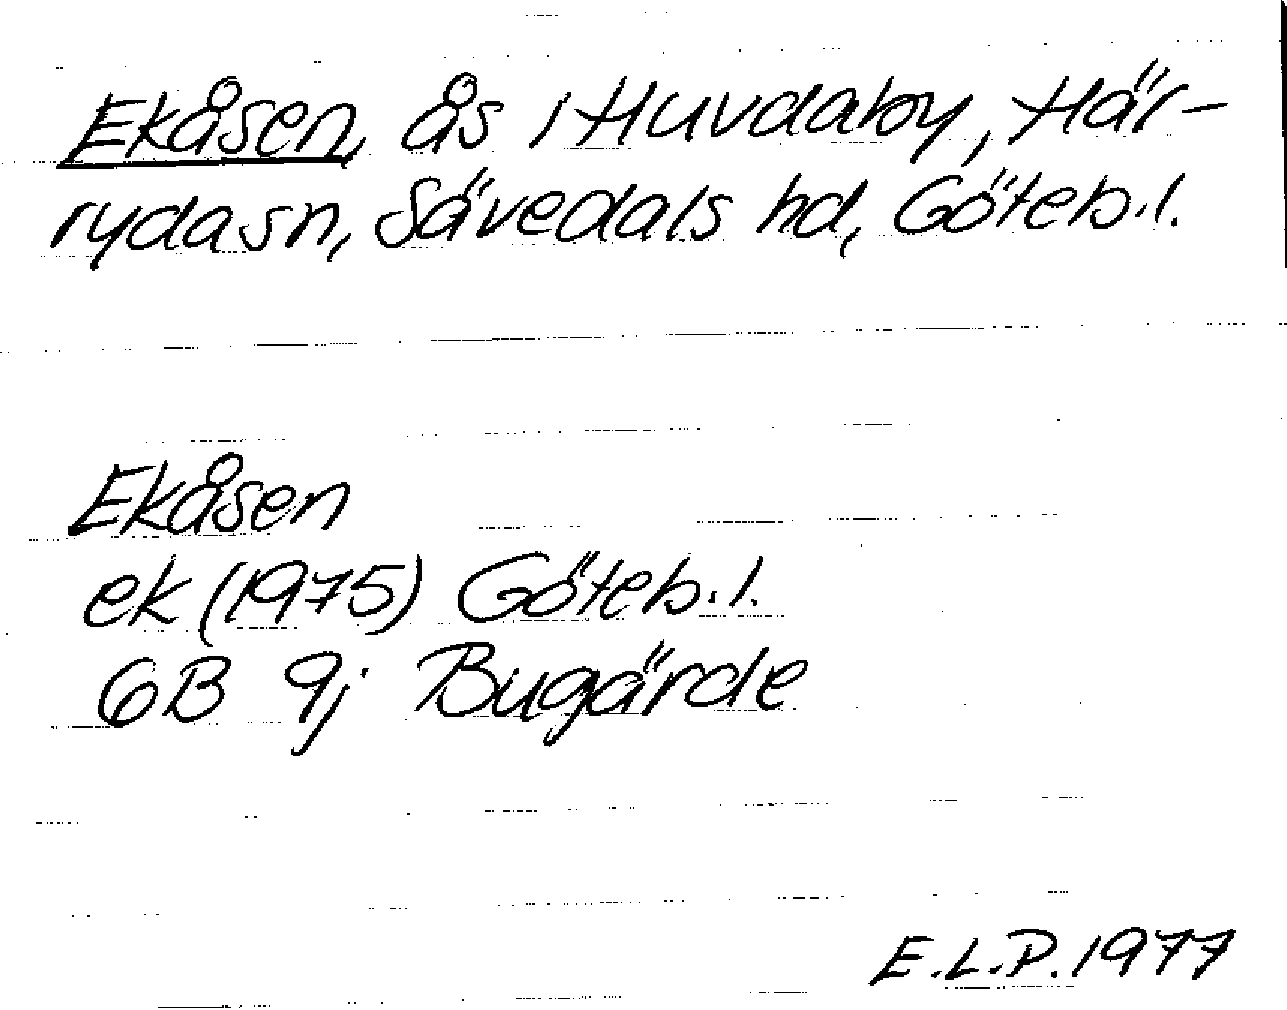 Ekåsen, ås i Huvdaby, Här-
ryda sn, Sävedals hd, Göteb. l.
Ekåsen
ek (1975) Göteb. l.
6B 9j Bugärde
E.L.P. 1977